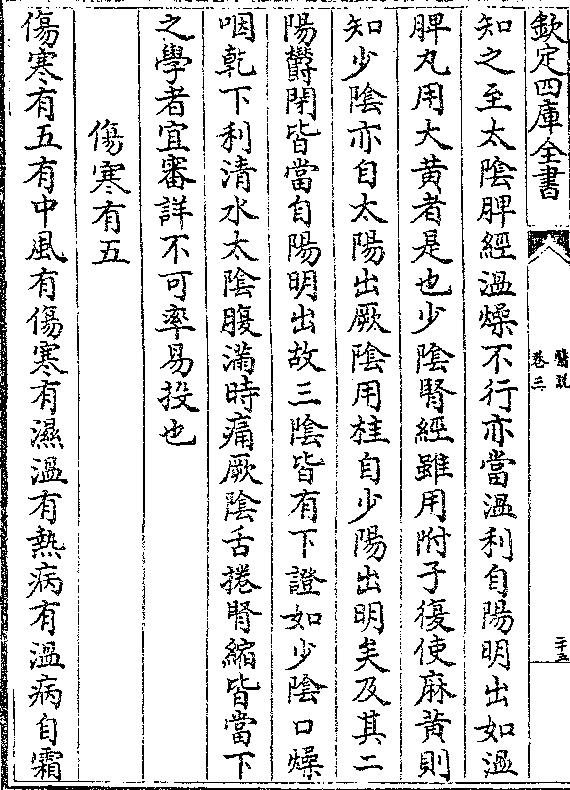 欽定四庫全書
醫說
卷三
二十五
知之至太陰脾經溫燥不行亦當溫利自陽明出如溫
脾丸用大黄者是也少陰腎經雖用附子復使麻黄則
知少陰亦自太陽出厥陰用桂自少陽出明矣及其二
陽欝閉皆當自陽明出故三陰皆有下證如少陰口燥
咽乾下利清水太陰腹滿時痛厥陰舌捲腎縮皆當下
之學者宜審詳不可率易投也
傷寒有五
傷寒有五有中風有傷寒有濕溫有熱病有溫病自霜